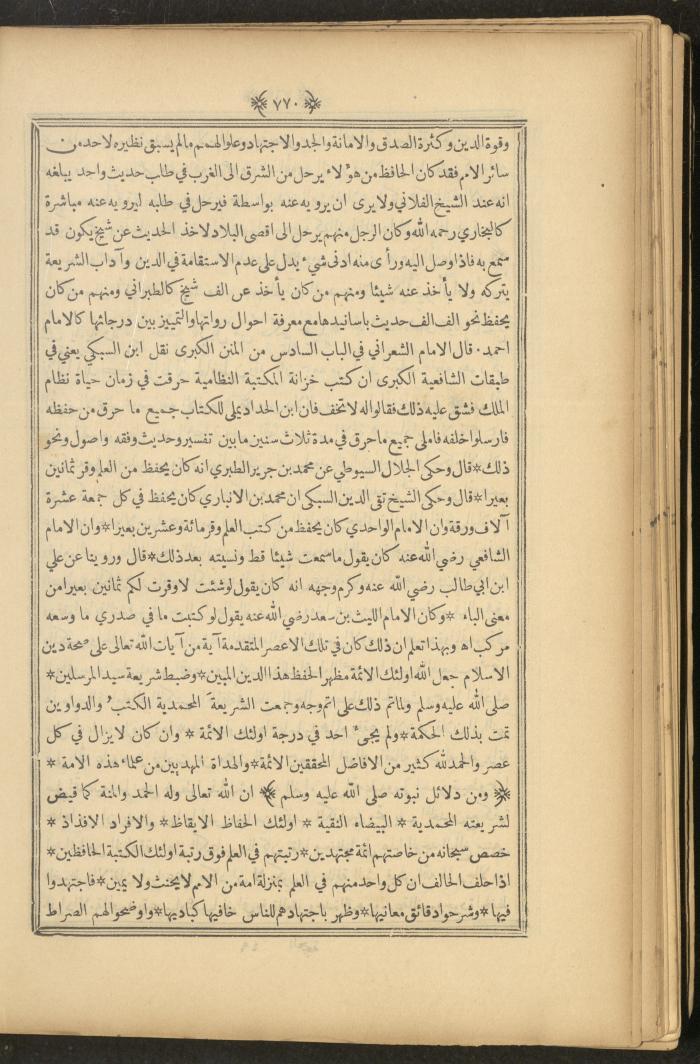 ﴿ ٧٧٠ ﴾
وقوة الدين وكثرة الصدق والامانة والجد والاجتهاد وعلو الهمم مالم يسبق نظيره لاحد من
سائر الامم فقد كان الحافظ من هؤلاء يرحل من الشرق الى الغرب في طلب حديث واحد يبلغه
انه عند الشيخ الفلاني ولا يرى ان يرويه عنه بواسطة فيرحل في طلبه ليرويه عنه مباشرة
كالبخاري رحمه الله وكان الرجل منهم يرحل الى اقصى البلاد لاخذ الحديث عن شيخ يكون قد
سمع به فاذا وصل اليه ورأى منه ادنى شيء يدل على عدم الاستقامة في الدين وآداب الشريعة
يتركه ولا يأخذ عنه شيئا ومنهم من كان يأخذ عن الف شيخ كالطبراني ومنهم من كان
يحفظ نحو الف الف حديث باسانيدها مع معرفة احوال رواتها والتمييز بين درجاتها كالامام
احمد. قال الامام الشعراني في الباب السادس من المنن الكبرى نقل ابن السبكي يعني في
طبقات الشافعية الكبرى ان كتب خزانة المكتبة النظامية حرقت في زمان حياة نظام
الملك فشق عليه ذلك فقالوا له لا تخف فان ابن الحداد يملي للكتاب جميع ما حرق من حفظه
فارسلوا خلفه فاملى جميع ما حرق في مدة ثلاث سنين ما بين تفسير وحديث وفقه واصول ونحو
ذلك * قال وحكى الجلال السيوطي عن محمد بن جرير الطبري انه كان يحفظ من العلم وقر ثمانين
بعيرا * قال وحكى الشيخ تقى الدين السبكى ان محمد بن الانباري كان يحفظ في كل جمعة عشرة
آلاف ورقة وان الامام الواحدي كان يحفظ من كتب العلم وقر مائة وعشرين بعيرا * وان الامام
الشافعي رضي الله عنه كان يقول ما سمعت شيئا قط ونسيته بعد ذلك * قال وروينا عن علي
ابن ابي طالب رضي الله عنه وكرم وجهه انه كان يقول لو شئت لاوقرت لكم ثمانين بعيرا من
معنى الباء * وكان الامام الليث بن سعد رضي الله عنه يقول لو كتبت ما في صدري ما وسعه
مركب اه وبهذا تعلم ان ذلك كان في تلك الاعصر المتقدمة آية من آيات الله تعالى على صحة دين
الاسلام جعل الله اولئك الائمة مظهر الحفظ هذا الدين المبين * وضبط شريعة سيد المرسلين *
صلى الله عليه وسلم ولما تم ذلك على اتم وجه وجمعت الشريعة المحمدية الكتب والدواوين
تمت بذلك الحكمة * ولم يجئ احد في درجة اولئك الائمة * وان كان لا يزال في كل
عصر والحمد لله كثير من الافاضل المحققين الائمة * والهداة المهديين من علماء هذه الامة *
﴿ ومن دلائل نبوته صلى الله عليه وسلم ﴾ ان الله تعالى وله الحمد والمنة كما قيض
لشريعته المحمدية * البيضاء النقية * اولئك الحفاظ الايقاظ * والافراد الافذاذ *
خصص سبحانه من خاصتهم ائمة مجتهدين * رتبتهم في العلم فوق رتبة اولئك الكتبة الحافظين *
اذا حلف الحالف ان كل واحد منهم في العلم بمنزلة امة من الامم لا يحنث ولا يمين * فاجتهدوا
فيها * وشرحوا دقائق معانيها * وظهر باجتهادهم للناس خافيها كباديها * واوضحوا لهم الصراط